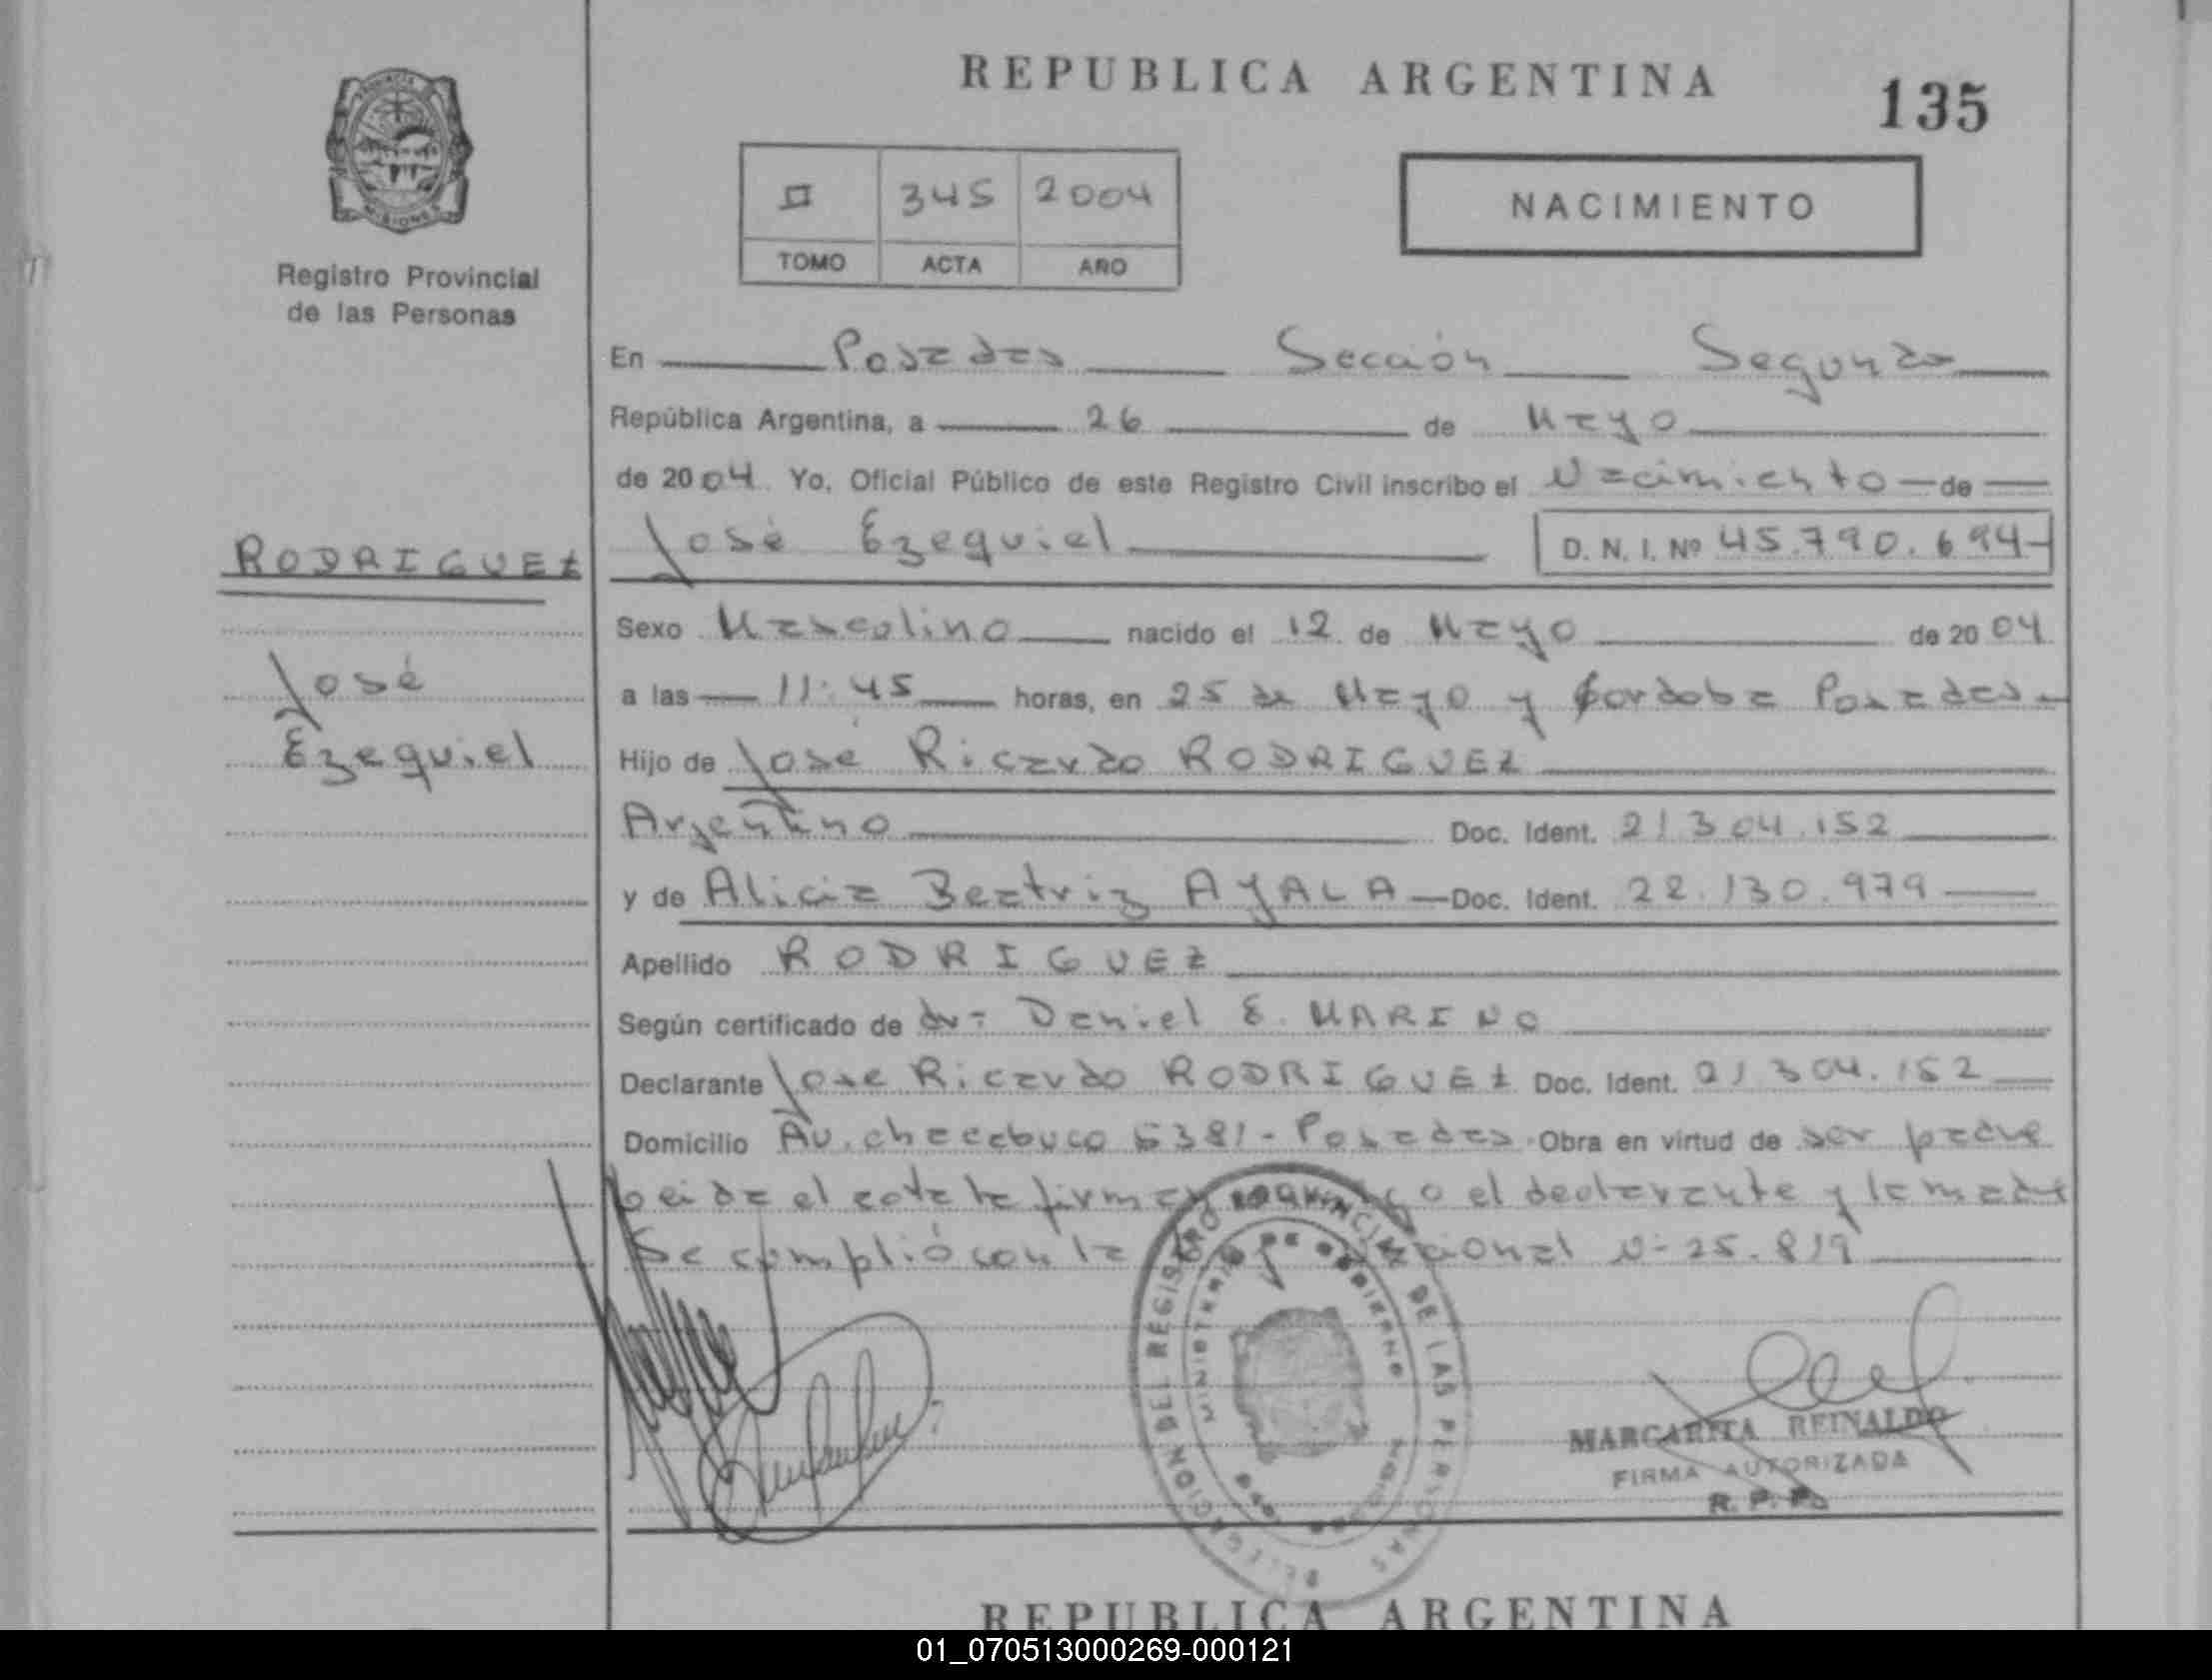 REPUBLICA ARGENTINA
135
PROVINCIA
MISIONES
Registro Provincial
de las Personas
II 345 2004
TOMO ACTA AÑO
NACIMIENTO
En Posadas Sección Segunda
República Argentina, a 26 de Mayo
de 2004. Yo, Oficial Público de este Registro Civil inscribo el Nacimiento de
José Ezequiel D. N. I. Nº 45.790.694
RODRIGUEZ
José
Ezequiel
Sexo Masculino nacido el 12 de Mayo de 2004
a las 11:45 horas, en 25 de Mayo y Cordoba Posadas
Hijo de José Ricardo RODRIGUEZ
Argentino Doc. Ident. 21304.152
y de Alicia Beatriz AYALA Doc. Ident. 22.130.979
Apellido RODRIGUEZ
Según certificado de dr: Daniel E. MARINO
Declarante José Ricardo RODRIGUEZ Doc. Ident. 21304.152
Domicilio Av. chacabuco 6381 - Posadas. Obra en virtud de ser padre
Leida el acta la firman el declarante y la madre
Se complió con la N- 25.819
DELEGACION DEL REGISTRO PROVINCIAL DE LAS PERSONAS
MINISTERIO DE GOBIERNO
MARGARITA REINALDO
FIRMA AUTORIZADA
R. P. P.
REPUBLICA ARGENTINA
01_070513000269-000121